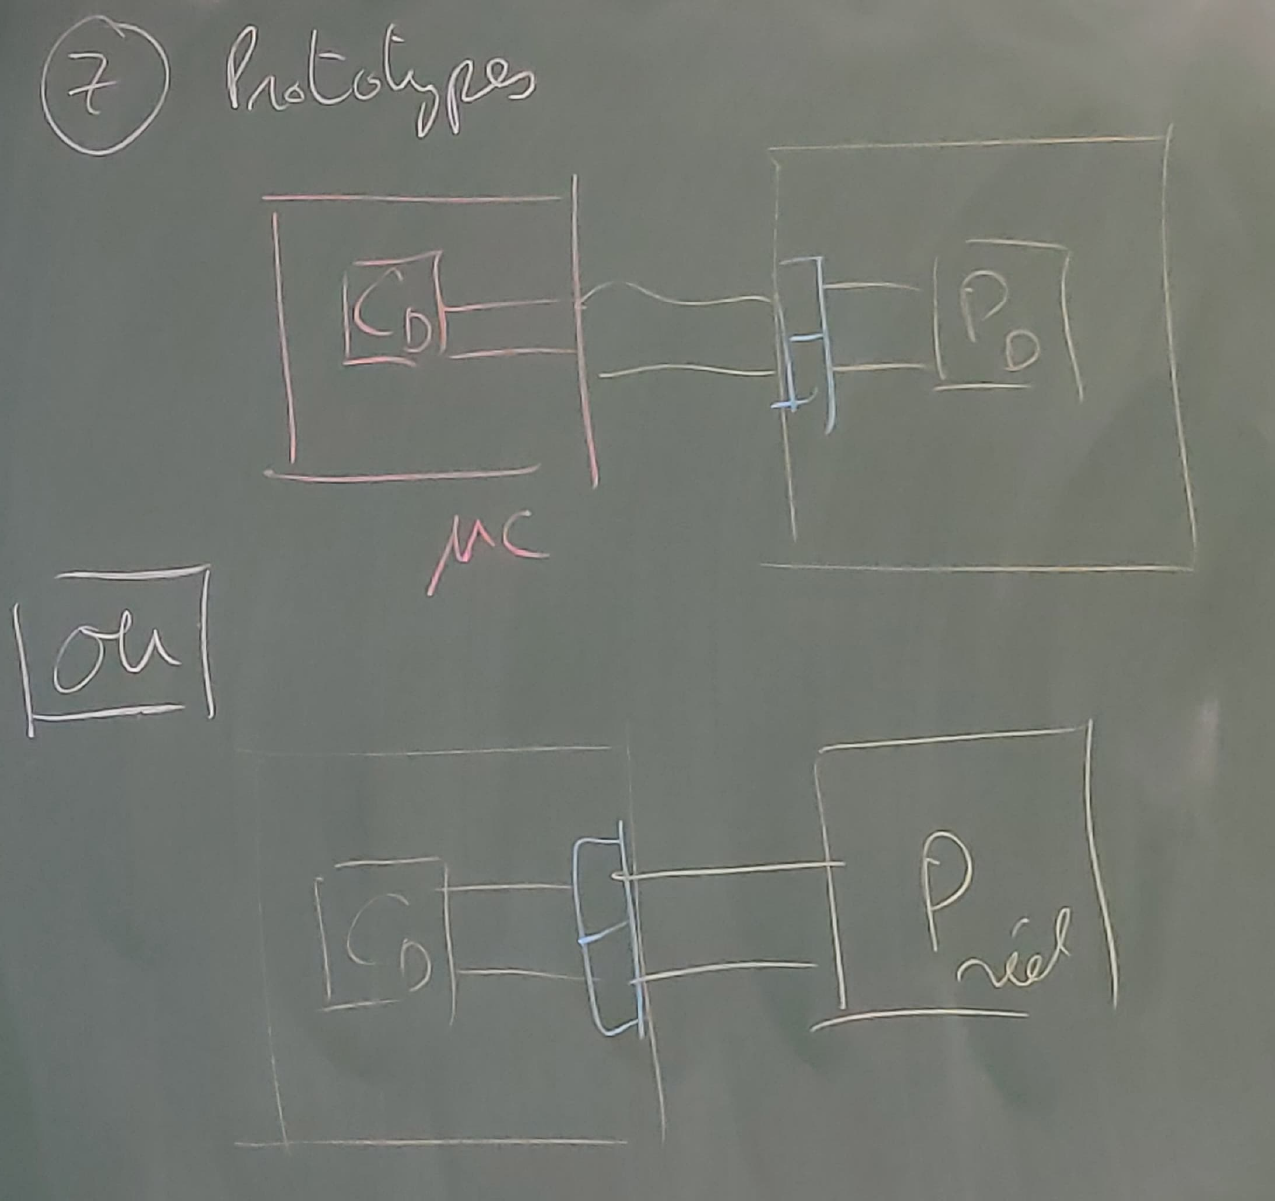 7 Prototypes
C_D
P_D
μC
ou
C_D
P réel